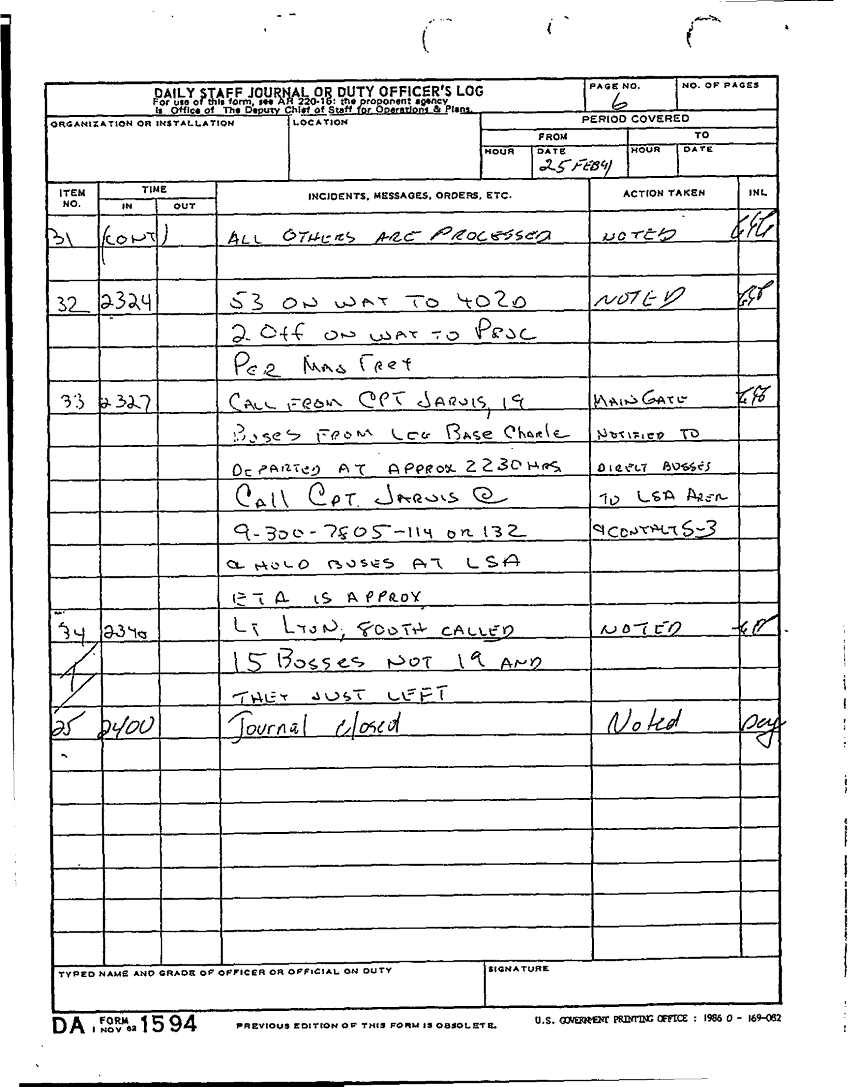 DAILY STAFF JOURNAL OR DUTY OFFICER'S LOG
For use of this form, see AR 220-15; the proponent agency
is Office of The Deputy Chief of Staff for Operations & Plans.
PAGE NO.
6
NO. OF PAGES
ORGANIZATION OR INSTALLATION
LOCATION
PERIOD COVERED
FROM
TO
HOUR
DATE
25 FEB 91
HOUR
DATE
ITEM NO.
TIME
IN
OUT
INCIDENTS, MESSAGES, ORDERS, ETC.
ACTION TAKEN
INL
31 (CONT) ALL OTHERS ARE PROCESSED NOTED
32 2324 53 ON WAY TO 402D NOTED
2 Off ON WAY TO PROC
PER MAJ
33 2327 CALL FROM CPT JARVIS, 19 MAIN GATE
BUSES FROM LOG BASE Charlie NOTIFIED TO
DEPARTED AT APPROX 2230 HRS DIRECT BUSSES
CALL CPT. JARVIS @ TO LSA AREA
9-300-7805-114 OR 132 & CONTACT S-3
& HOLD BUSES AT LSA
ETA IS APPROX
34 2340 LT LYON, 800TH CALLED NOTED
15 BUSSES NOT 19 AND
THEY JUST LEFT
25 2400 Journal Closed Noted
TYPED NAME AND GRADE OF OFFICER OR OFFICIAL ON DUTY
SIGNATURE
DA FORM 1 NOV 62 1594
PREVIOUS EDITION OF THIS FORM IS OBSOLETE.
U.S. GOVERNMENT PRINTING OFFICE : 1986 O - 169-082